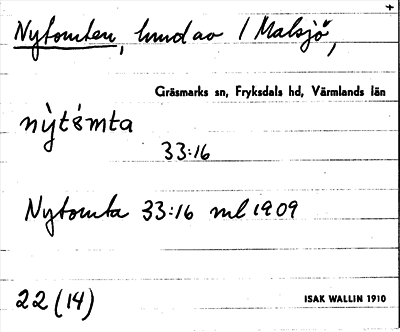 Nytomten, hmd av 1 Malsjö,
Gräsmarks sn, Fryksdals hd, Värmlands län
nỳtómta
33:16
Nytomta 33:16 ml 1909
22 (14)
ISAK WALLIN 1910